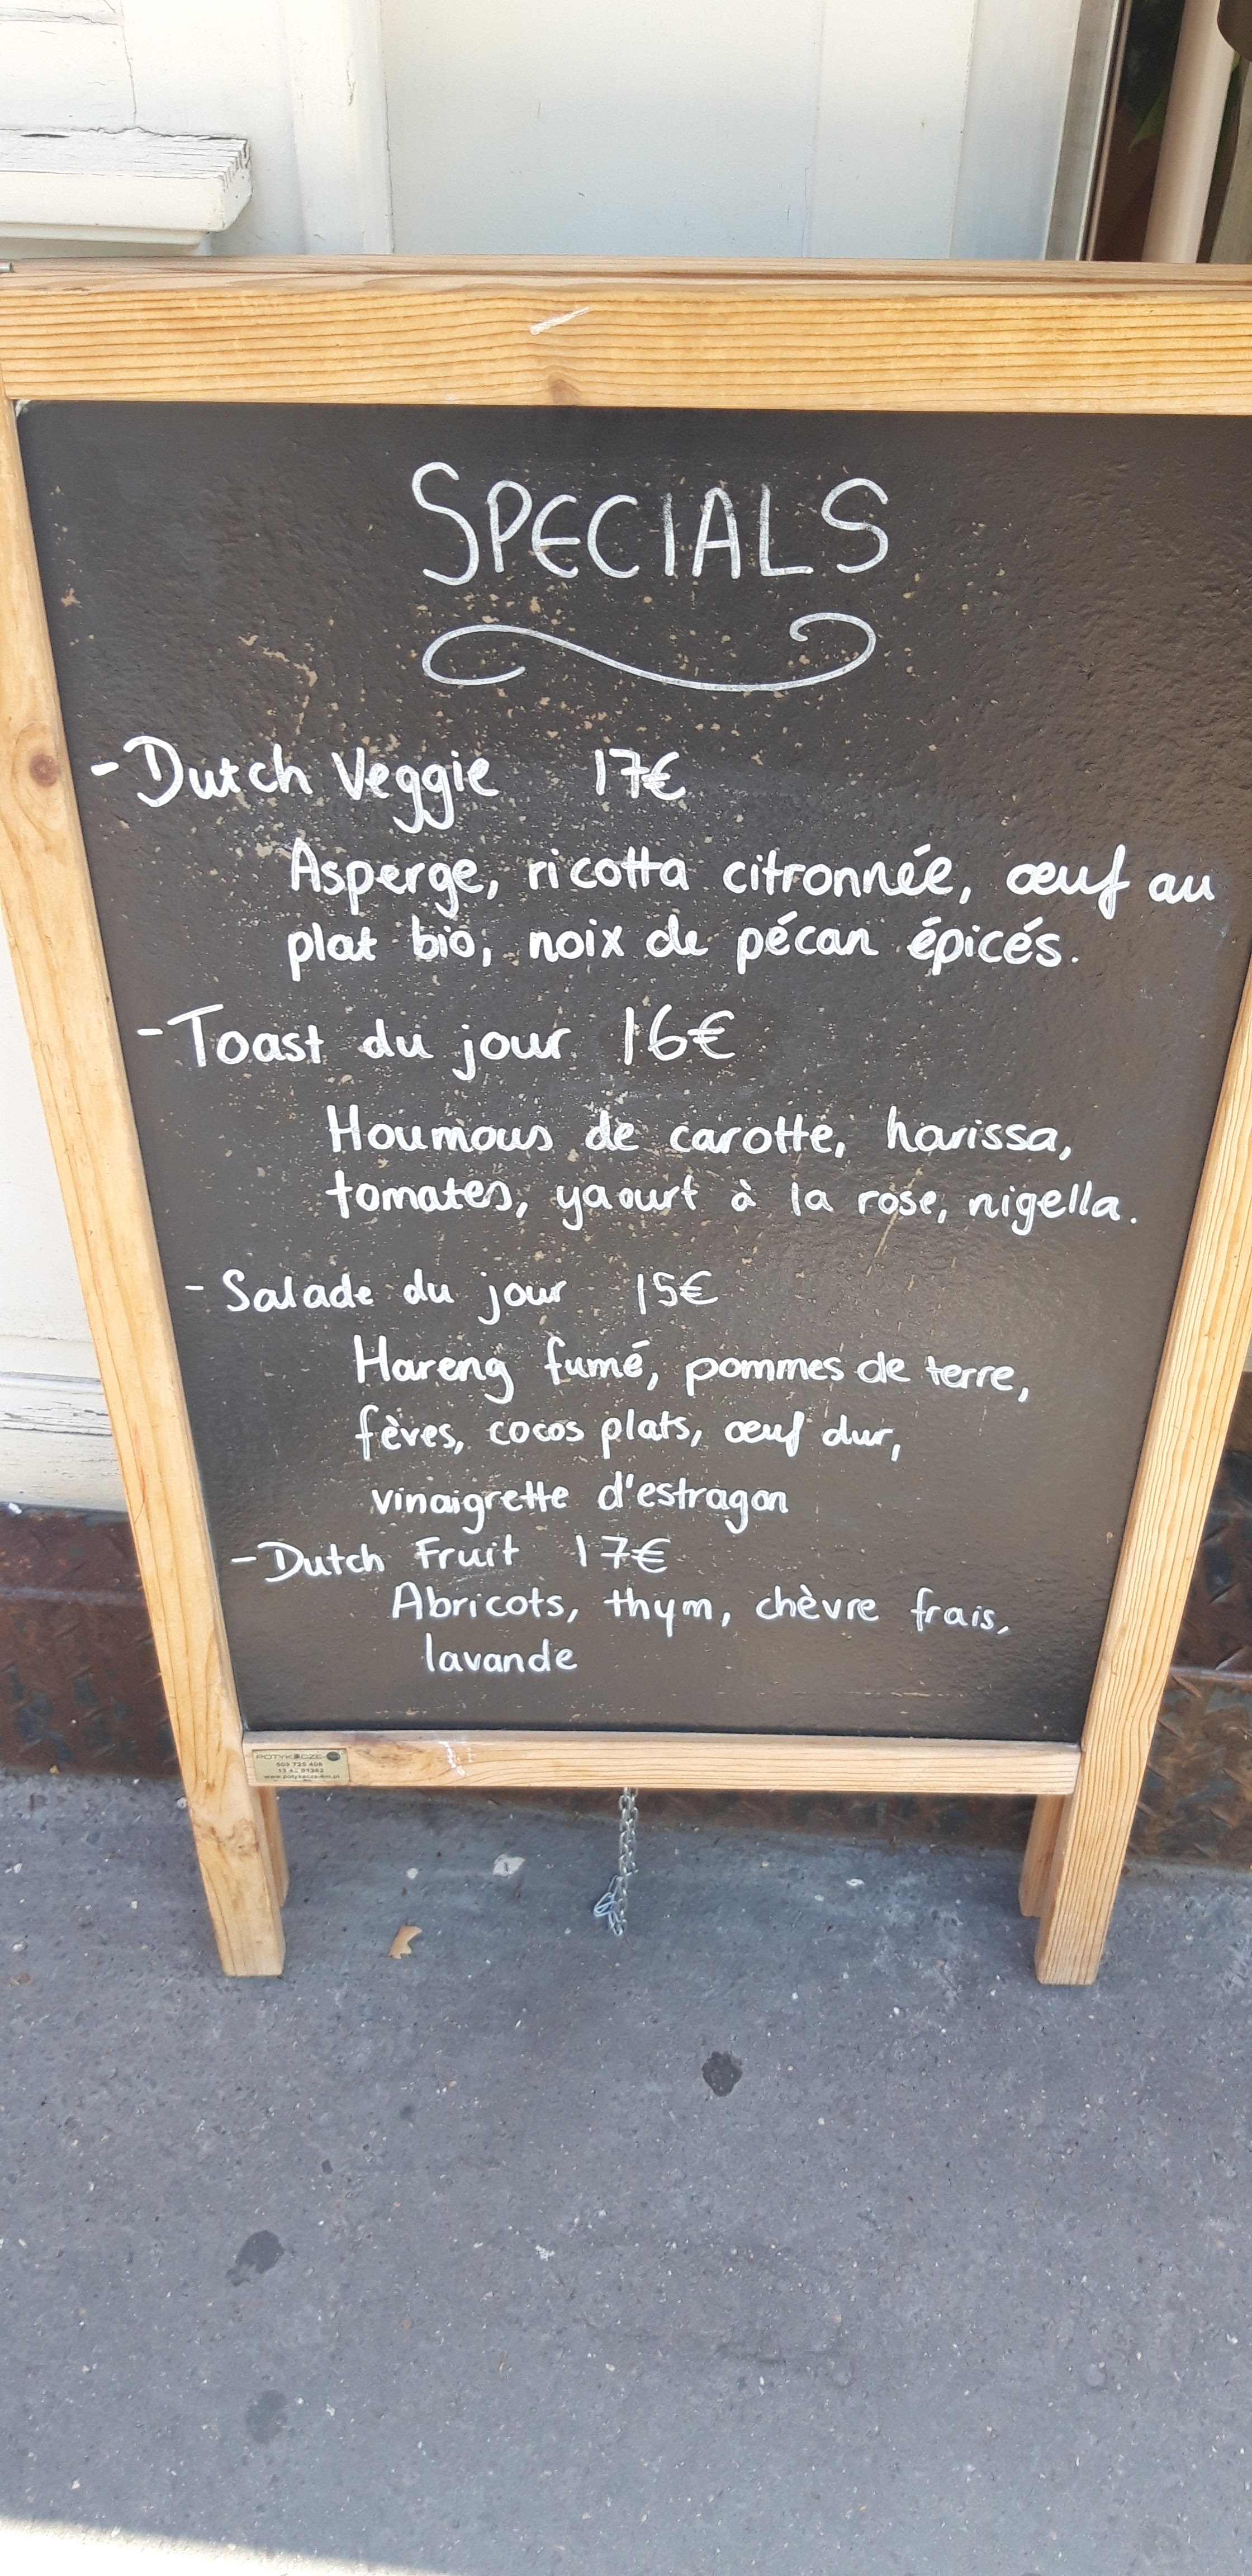 SPECIALS
- Dutch Veggie 17€
Asperge, ricotta citronnée, œuf au
plat bio, noix de pécan épicés.
- Toast du jour 16€
Houmous de carotte, harissa,
tomates, yaourt à la rose, nigella.
- Salade du jour 15€
Hareng fumé, pommes de terre,
fèves, cocos plats, œuf dur,
vinaigrette d'estragon
- Dutch Fruit 17€
Abricots, thym, chèvre frais,
lavande